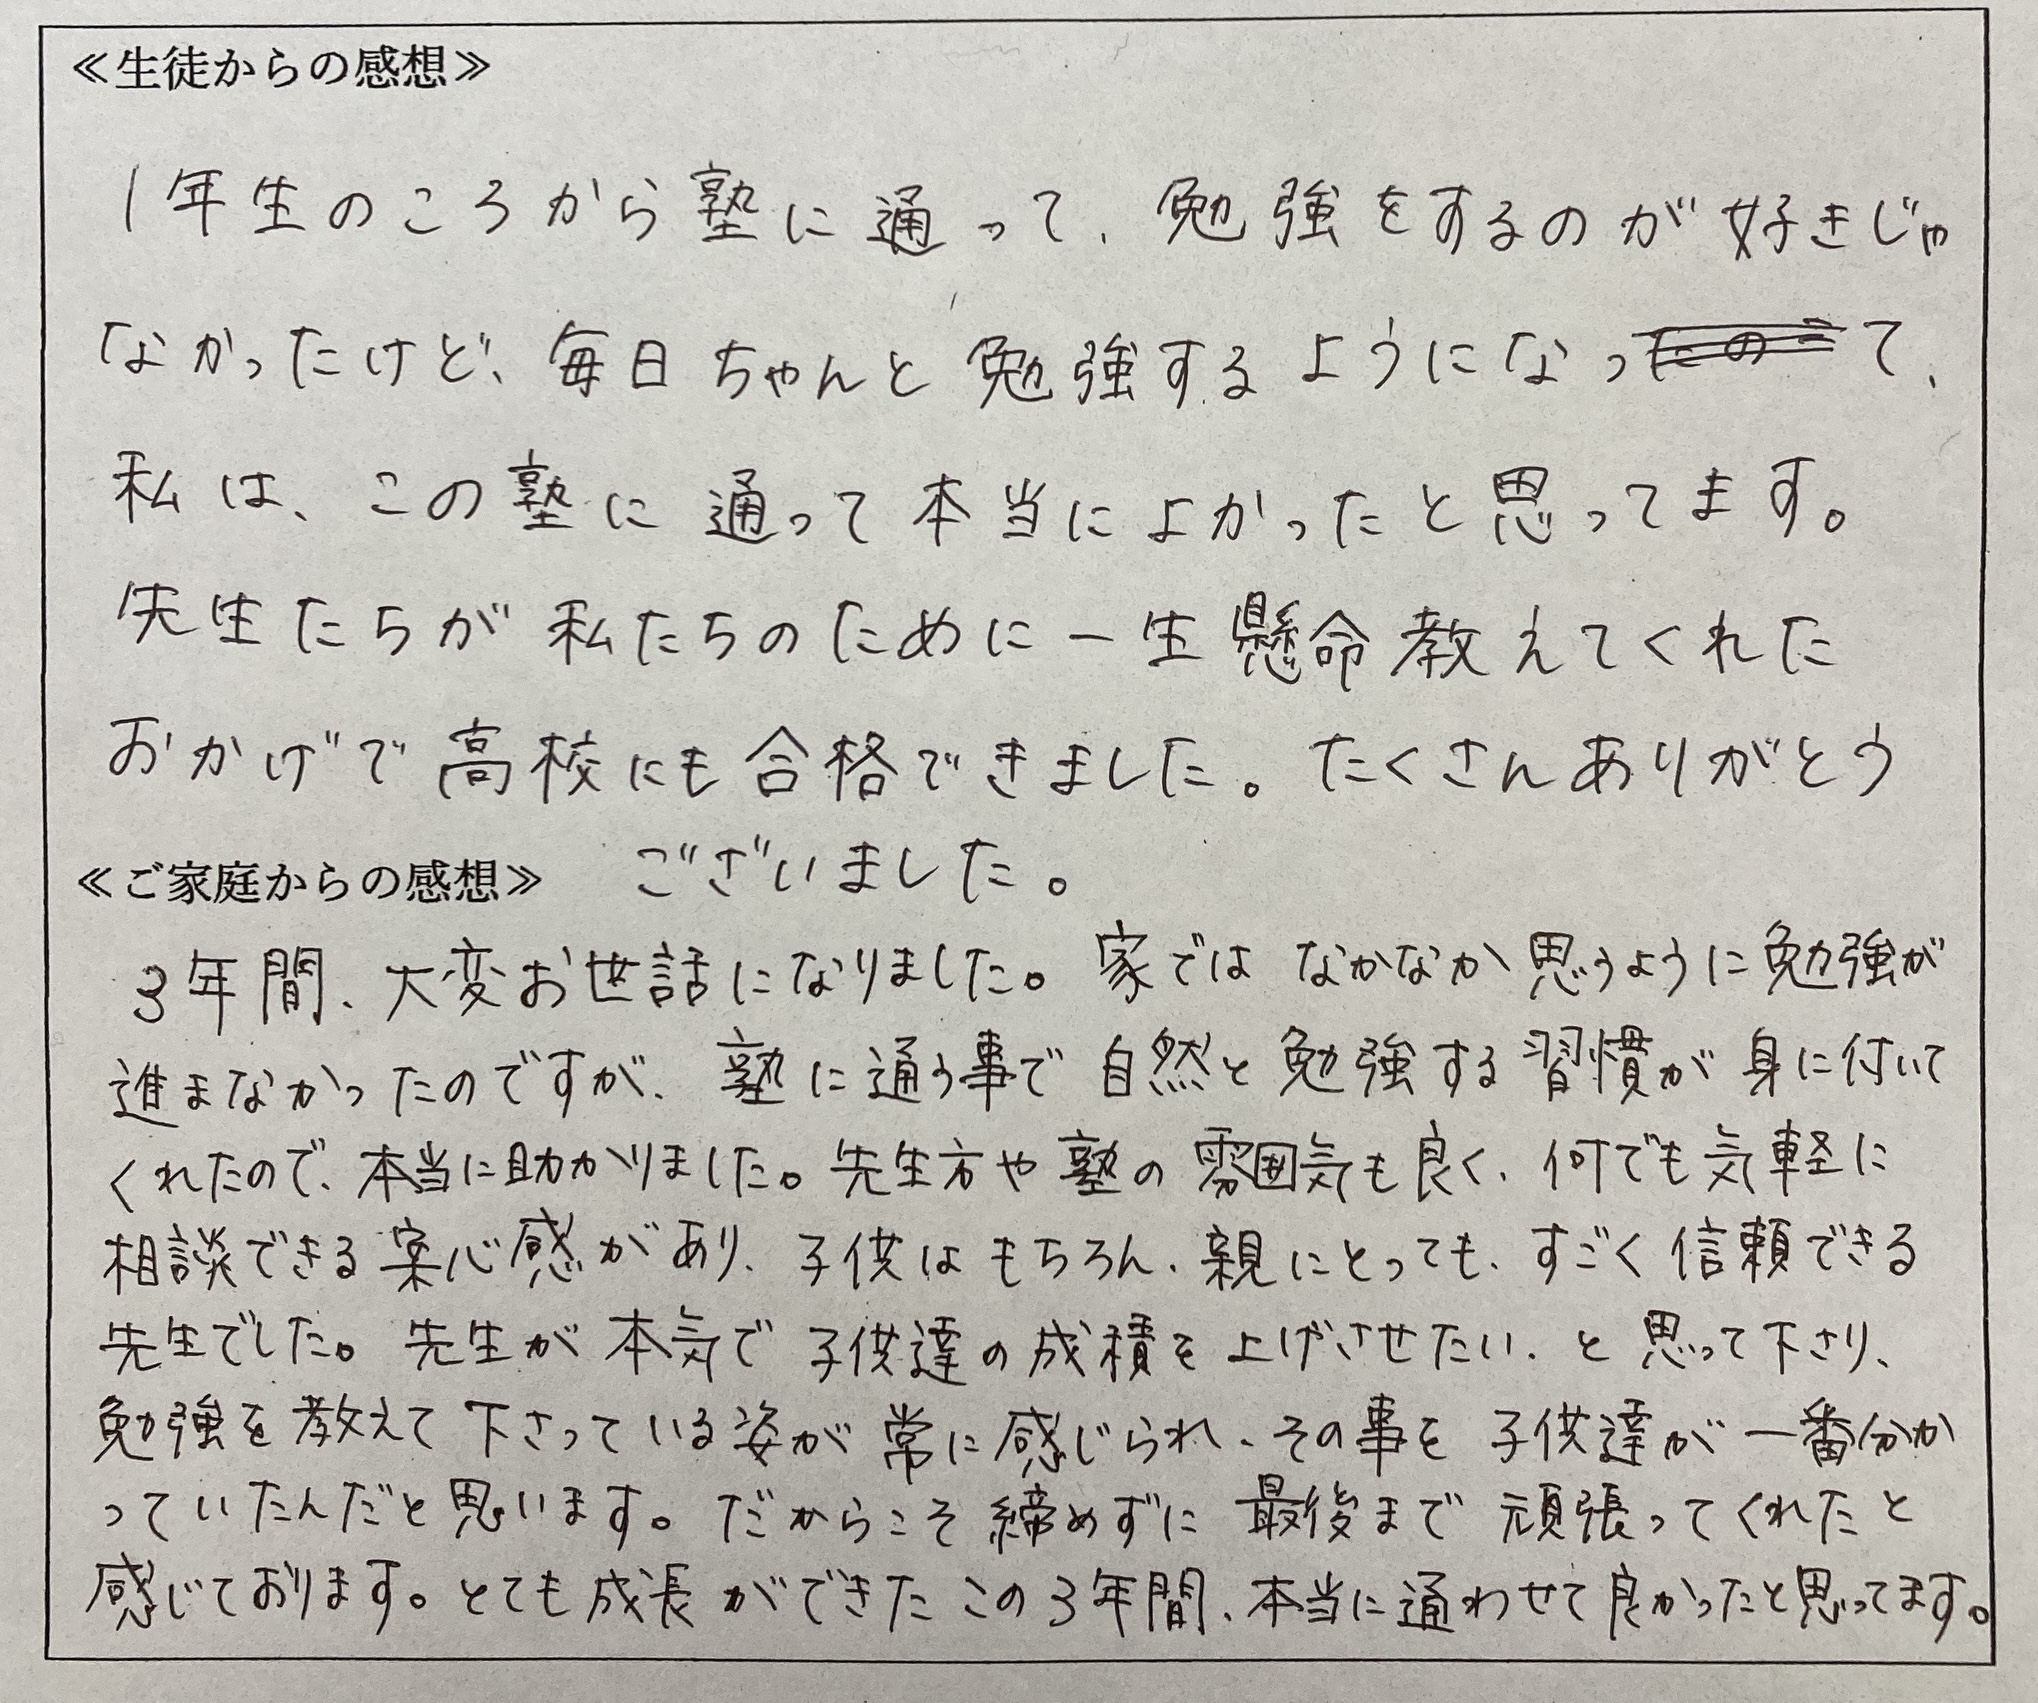 ≪生徒からの感想≫
1年生のころから塾に通って、勉強をするのが好きじゃ
なかったけど、毎日ちゃんと勉強するようになって、
私は、この塾に通って本当によかったと思ってます。
先生たちが私たちのために一生懸命教えてくれた
おかげで高校にも合格できました。たくさんありがとう
ございました。
≪ご家庭からの感想≫
3年間、大変お世話になりました。家ではなかなか思うように勉強が
進まなかったのですが、塾に通う事で自然と勉強する習慣が身に付いて
くれたので、本当に助かりました。先生方や塾の雰囲気も良く、何でも気軽に
相談できる安心感があり、子供はもちろん、親にとっても、すごく信頼できる
先生でした。先生が本気で子供達の成積を上げさせたい、と思って下さり、
勉強を教えて下さっている姿が常に感じられ、その事を子供達が一番分か
っていたんだと思います。だからこそ締めずに最後まで頑張ってくれたと
感じております。とても成長ができたこの3年間、本当に通わせて良かったと思ってます。